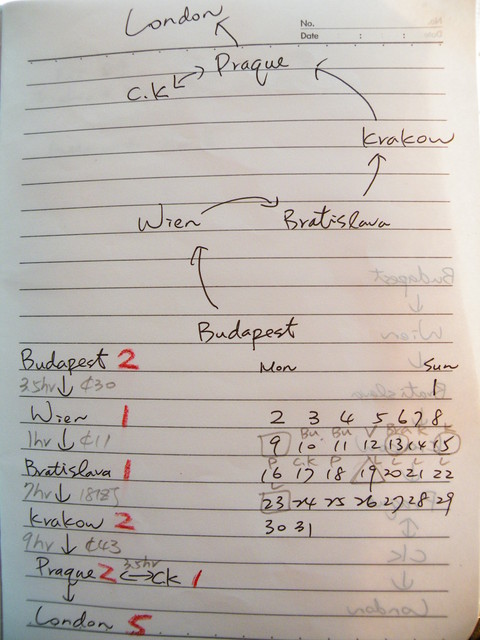 No.
Date : :
London
Praque
C.K
Krakow
Wien Bratislava
Budapest
Budapest 2
3.5hr ¢30
Wien 1
1hr ¢11
Bratislava 1
7hr
Krakow 2
9hr ¢43
Praque 2 3.5hr CK 1
London 5
Mon Sun
1
2 3 4 5 6 7 8
Bu Bu V K K
9 10 11 12 13 14 15
P C.K P L L L
16 17 18 19 20 21 22
L
23 24 25 26 27 28 29
30 31